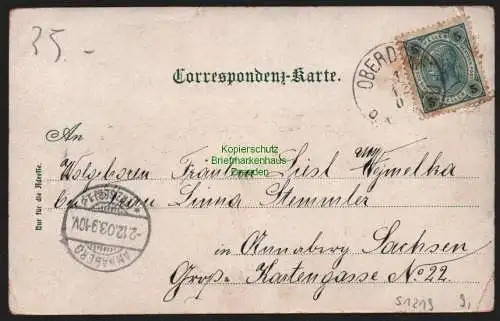 35.-
OBERD
5 HELLER 5
Correspondenz-Karte.
An
Kopierschutz
Briefmarkenhaus
Dresden
Wolgeboren Fräulein Liesl Wymelka
bei Frau Linna Stemmler
Nur für die Adresse.
ANNABERG
-2.12.03.9-10V.
in Annaberg Sachsen
Groß-Kartengasse No 22.
S1219 9,